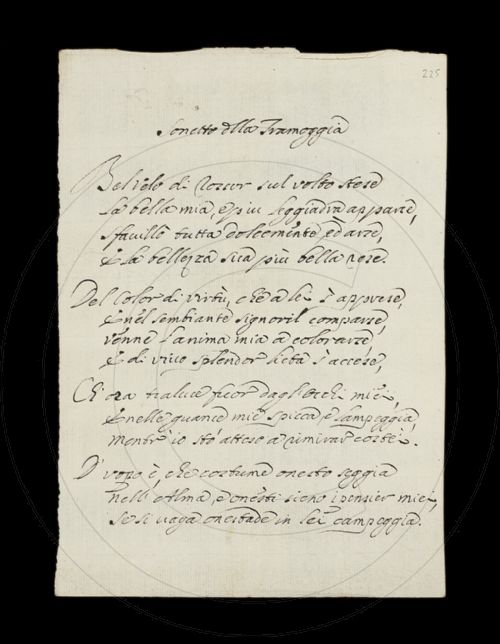 225
Sonetto dlla Tramoggia
Bel velo di Rossor sul volto stese
La bella mia, e piu leggiadra apparse,
sfavillò tutta dolcemente, ed arse,
E la bellezza sua più bella rese.
Del Color di virtù, che a lei s'apprese,
E nel sembiante signoril comparse,
venne l'anima mia a colorarse,
E di vivo splendor lieta s'accese,
Ch'ora traluce fuor dagli Occhi miei,
E nelle guance mie spicca, e lampeggia,
mentr'io sto atteso a rimirar costei.
D'uopo è, che costume onesto seggia
nell'Alma, e onesti sieno i pensier miei,
Se sì vaga onestade in lei campeggia.